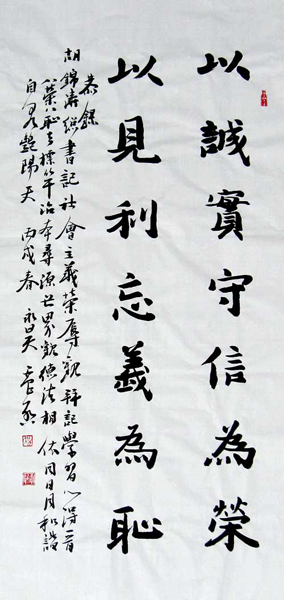 以誠實守信為榮
以見利忘義為恥
恭錄
胡錦濤總書記社會主義榮辱觀 并記學習心得一首
八榮八恥立標竿治本尋源世界觀德法相依同日月和諧
自見艷陽天 丙戌春